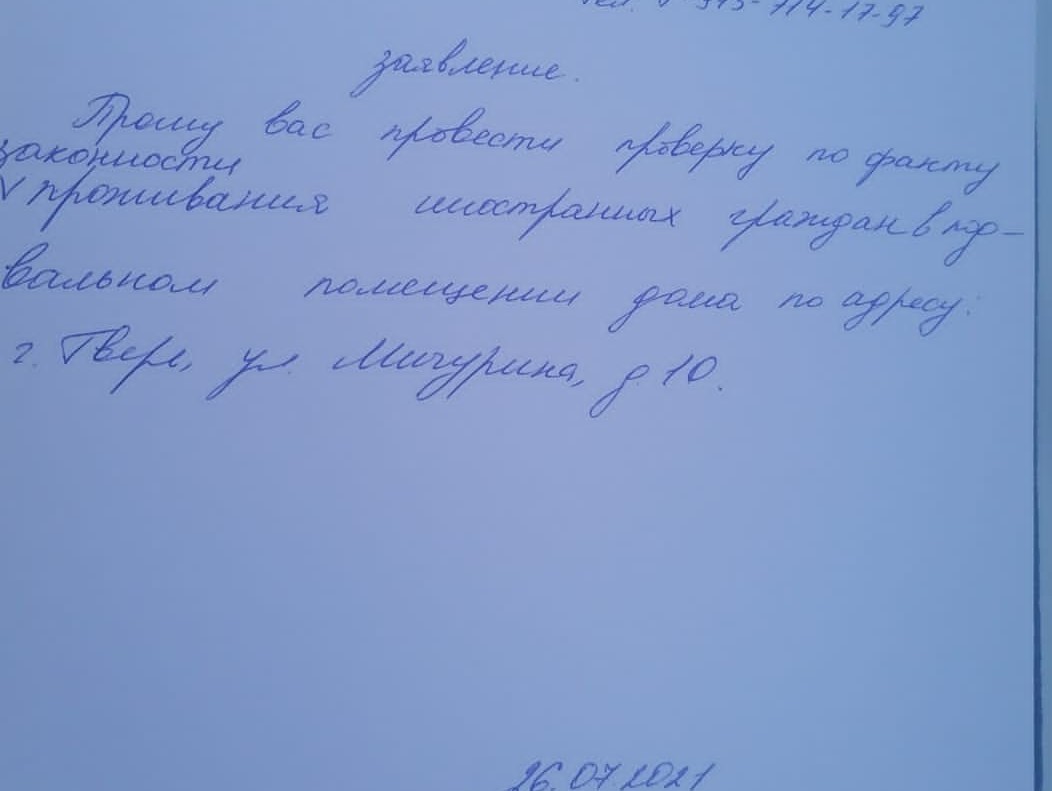 тел. 8 915-714-17-97
заявление.
Прошу вас провести проверку по факту
законности
V проживания иностранных граждан в под-
вальном помещении дома по адресу:
г. Тверь, ул. Мичурина, д. 10.
26.07.2021